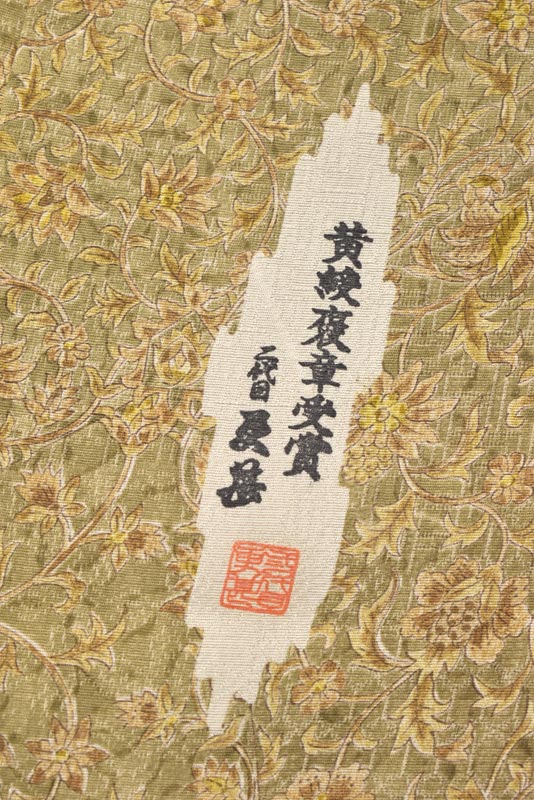 黄綬褒章受賞
二代目